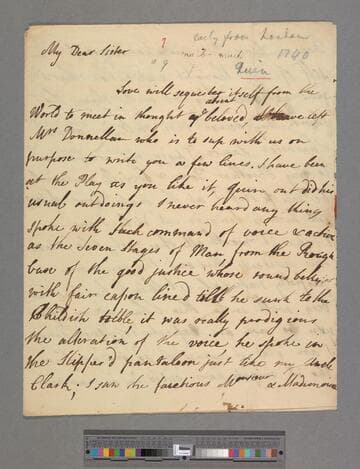 early from London
My Dear Sister
1740
Quin
Love will sequester itself from the
World to meet in thought ye absent beloved, I have left
Mrs Donnellan who is to sup with us on
purpose to write you a few lines. I have been
at the Play as you like it, Quin out did his
usual outdoings I never heard any thing
spoke with such command of voice & action
as the Seven Stages of Man, from the Rough
base of the good justice whose round belly
with fair capon lined till he sunk to the
Childish treble, it was really prodigious
the alteration of the voice he spoke in
the Slipper'd pantaloon just like my Uncle
Clark; I saw the facetious Monsieur & Madame